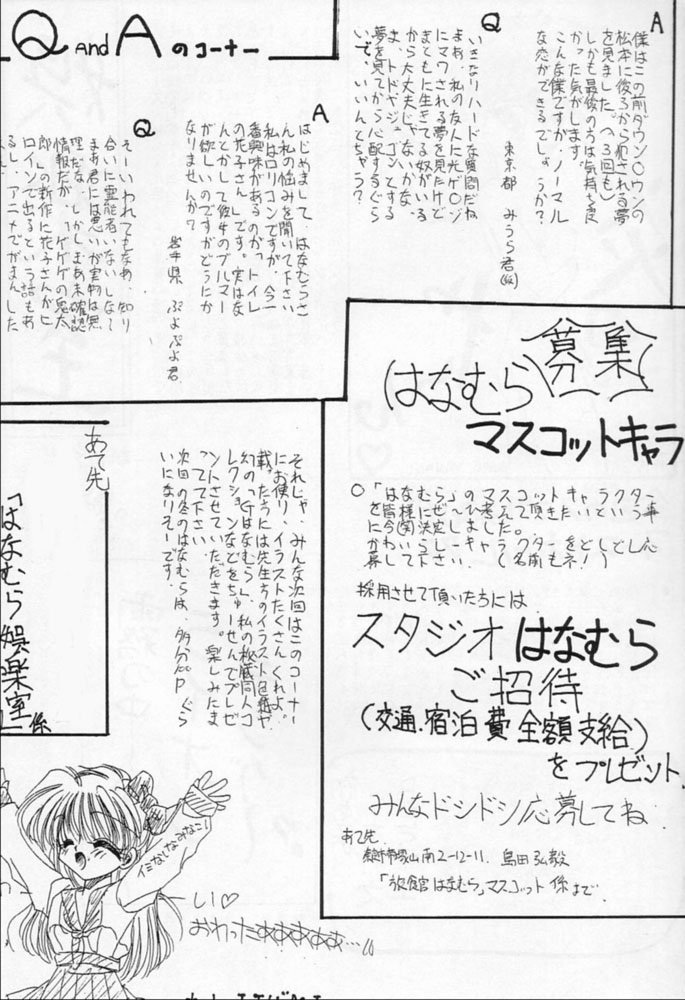 Q AND A のコーナー
A
僕はこの前ダウン○ウンの
松本に後ろから犯される夢
を見ました。(へ3回も)
しかも最後のうちは気持ち良
かった気がします。
こんな僕ですが、ノーマル
な恋ができるでしょうか?
東京都 みうら君(仮)
Q
いきなりハードな質問だね
よぉ、私の友人に光ゲ○ジ
にマワされる夢を見たけど
まともに生きてる奴がいる
から大丈夫じゃないかな。
ま、トドやジュゴンとする
夢を見てから心配するぐら
いで、いいんとちゃう?
A
はじめまして、はなむらさ
ん、私の悩みを聞いて下さい
私はロリコンですが、今一
番興味があるのが「トイレ
の花子さん」です。実はな
んとかして彼女のブルマー
が欲しいのですがどうにか
なりませんか?
岩手県 ぷよぷよ君
Q
そーいわれてもなぁ、知り
合いに霊能者いないしなぁて
まぁ君には悪いが実物は無
理だな、しかしまぁ未確認
情報だが、「ゲゲゲの鬼太
郎」の新作に花子さんがヒ
ロインで出るという話もあ
るし、アニメでがまんした
募集
はなむら
マスコットキャラ
○「はなむら」のマスコットキャラクター
を皆様に考えて頂きたいという事
に今(笑)決定しました。
かわいらしーキャラクターをどしどし応
募して下さい。(名前もネ!)
採用させて頂いたちには
スタジオ はなむら
ご招待
(交通.宿泊費 全額支給)
をプレゼント.
みんなドシドシ応募してね.
あて先
南2-12-11. 島田 弘毅
「放館 はなむら」マスコット 係まで
それじゃ、みんな次回はこのコーナー
にお便り、イラストたくさんくれよ。
載ったちには先生方のイラスト色紙や
幻の「Gはなむら」、私の秘蔵同人コ
レクションなどをちゅーせんでプレゼ
ントさせていただきます。楽しみたま
ってて下さい。
次回の冬のはなむらは、多分ccPぐら
いになりそーです。
あて先
「はなむら娯楽室」係
イミなけなみなこ!
し1♡
おわったああああぁ…!!